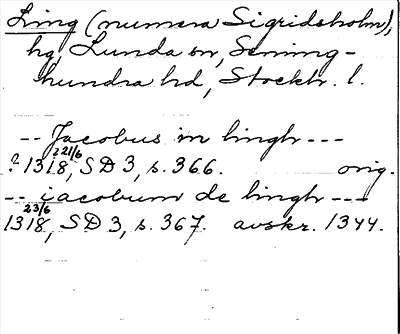 Ling (numera Sigridsholm),
hg, Lunda sn, Seming-
hundra hd, Stockh. l.
-- Jacobus in lingh ---
? 21/6
? 1318, SD 3, s. 366. orig.
-- iacobum de lingh ---
23/6
1318, SD 3, s. 367. avskr. 1344.